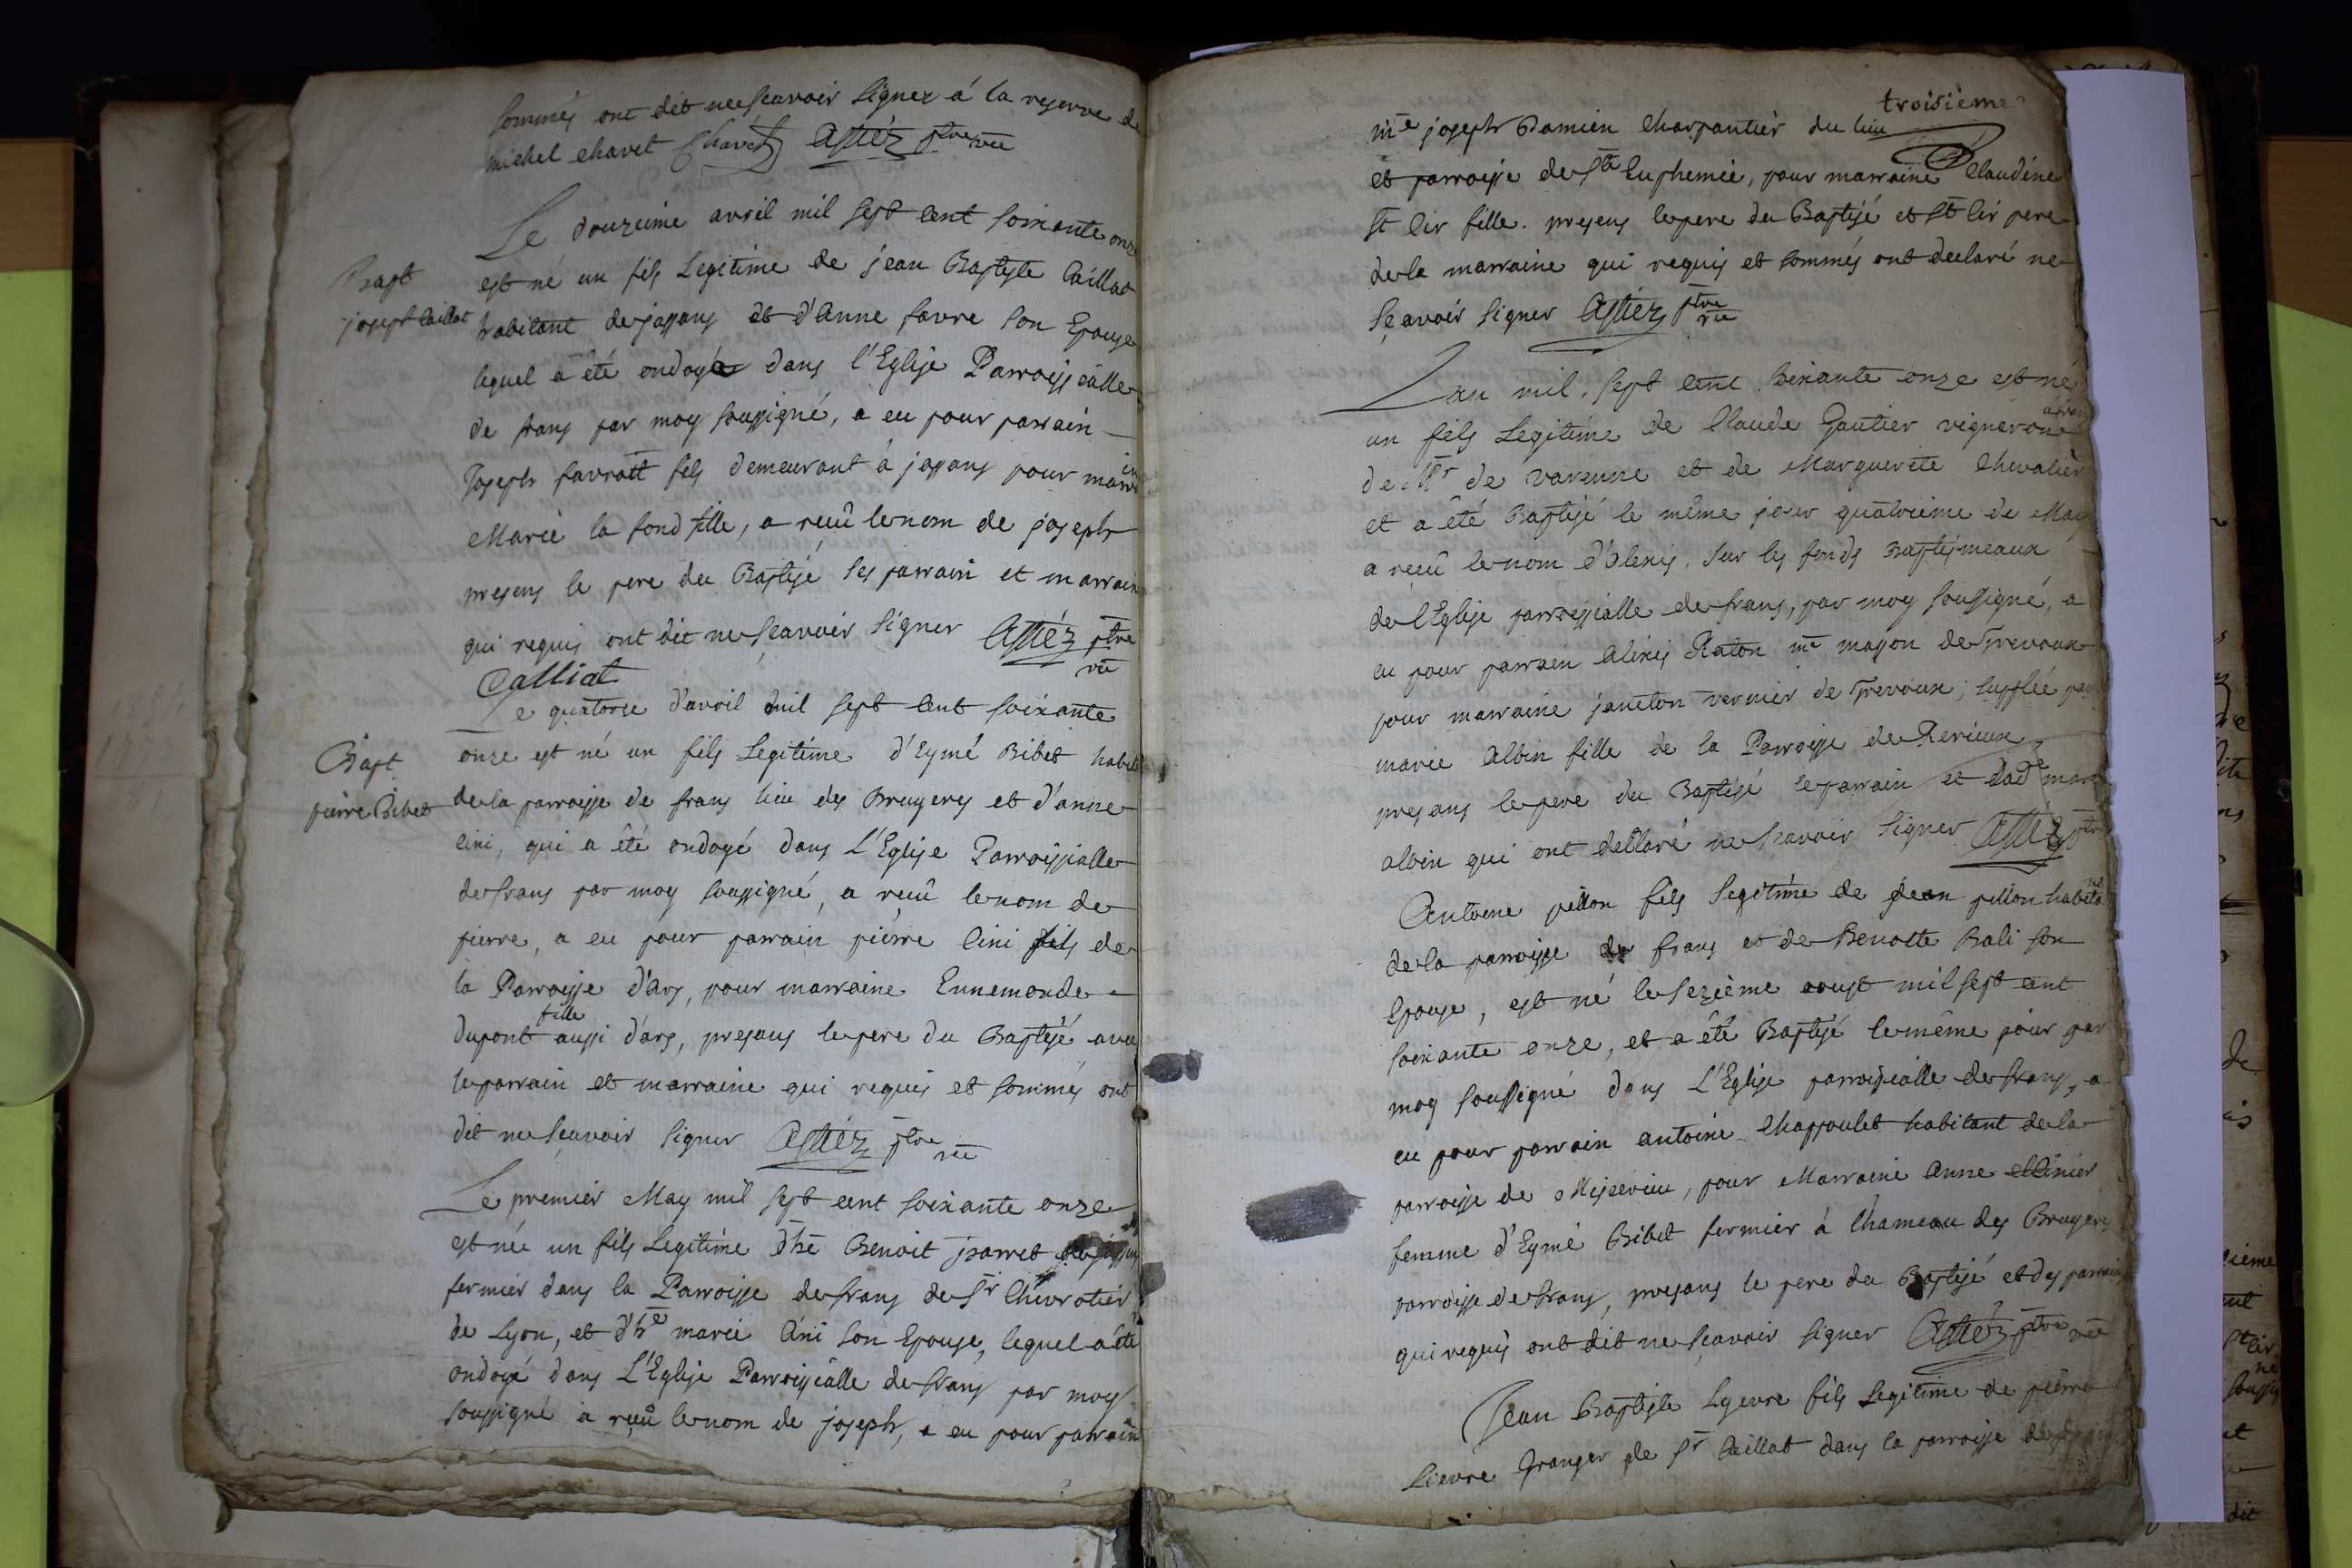 sommés ont dit ne sçavoir signer á la reserve de
michel chavet Chavet Astiér ptre vic
Le douzeime avril mil sept cent soixante onze
Bapt
joseph Caillat
est né un fils Legitime de jean Baptiste Caillat
habitant de jassans et d'Anne favre son Epouse
lequel a été ondoyé dans l'Eglise Parroissialle
de frans par moy soussigné, a eu pour parrain
Joseph favrott fils demeurant á jassans pour marraine
Marie la fond fille, a reçû le nom de joseph
presens le pere du Baptisé ses parrain et marraine
qui requis ont dit ne sçavoir signer Astiér ptre vic
Calliat
Le quatorze d'avril mil sept cent soixante
Bapt
pierre Bibet
onze est né un fils Legitime d'Eymé Bibet habit
de la parroisse de frans lieu des Bruyeres et d'anne
Cini, qui a été ondoyé dans L'Eglise Parroissialle
de frans par moy soussigné, a reçû le nom de
pierre, a eu pour parrain piérre Cini fils de
la Parroisse d'ars, pour marraine Ennemonde
dupont fille aussi d'ars, presans le pere du Baptisé avec
le parrain et marraine qui requis et sommés ont
dit ne sçavoir signer Astiér ptre vic
Le premier May mil sept cent soixante onze
est née un fils Legitime d'hê Benoit jsarret de jassans
fermier dans la Parroisse de frans de Sr Chevrotier
de Lyon, et d'he marie Cini son Epouse, lequel a été
ondoyé dans L'Eglise Parroissialle de frans par moy
soussigné a reçû le nom de joseph, a eu pour parrain
troisieme
me joseph Damien Charpantier du lieu
et parroisse de Ste Euphemie, pour marraine Claudine
St Cir fille. presens le pere du Baptisé et St Cir pere
de la marraine qui requis et sommés ont declaré ne
sçavoir signer Astiér ptre vic
Lan mil sept cent soixante onze est né
un fils Legitime de Claude Gautier vigneron á frans
de Mr de varenne et de Marguerite Chevalier
et a été Baptisé le même jour quatrieme de May
a reçû le nom d'Alexis. sur les fonds Baptismeaux
de l'Eglise parroissialle de frans, par moy soussigné, a
eu pour parrain Alexis Raton me maçon de Trevoux
pour marraine janeton vernier de Trevoux; supplée par
marie Albin fille de la Parroisse de Rerieux,
presans le pere du Baptisé le parrain et lade mar
albin qui ont déclaré ne sçavoir signer Astiér ptre
Antoine pillon fils legitime de jean pillon habitant
de la parroisse de frans et de Benoite Bali son
Epouse, est né le sezième aoust mil sept cent
soixante onze, et a été Baptisé le même jour par
moy soussigné dans L'Eglise parroissialle de frans, a
eu pour parrain antoine Chappoulet habitant de la
parroisse de Miserieu, pour Marraine Anne
femme d'Eymé Bibet fermier á l'hameau des Bruyeres
parroisse de frans, presans le pere du Baptisé et des parrains
qui requis ont dit ne sçavoir signer Astiér ptre vic
Jean Baptiste Lyevre fils Legitime de piérre
Lievre Granger de Sr Caillat dans la parroisse de frans